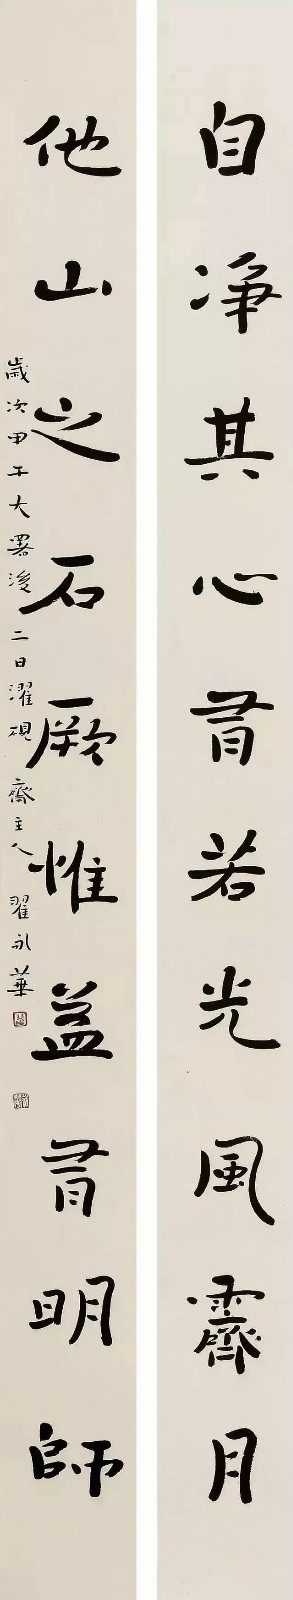 自净其心有若光風霽月
他山之石厥惟益有明師
歲次甲午大暑後二日濯硯齋主人翟永華